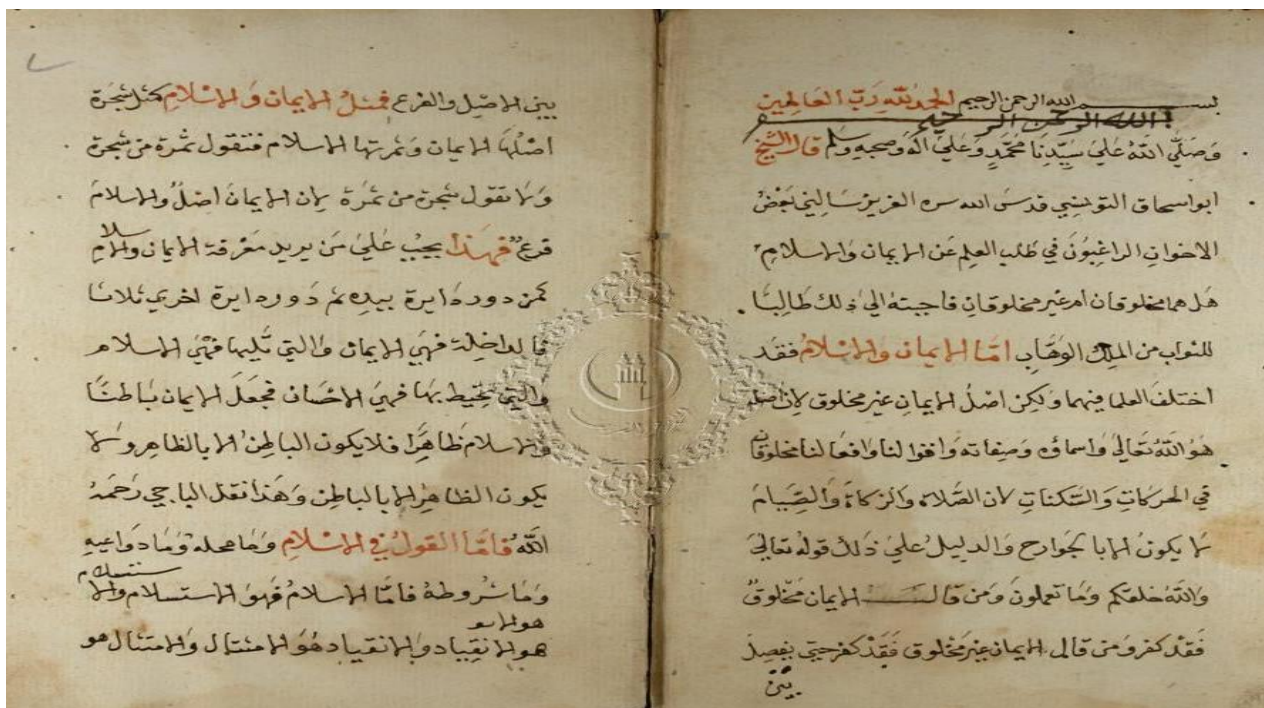 بسم الله الرحمن الرحيم الحمد لله رب العالمين
الله الرحمن الرحيم
وصلي الله علي سيدنا محمد وعلي اله وصحبه وسلم قال الشيخ
ابو اسحاق التونسي قدس الله سره العزيز سالني بعض
الاخوان الراغبون في طلب العلم عن الايمان والاسلام
هل هما مخلوقان ام غير مخلوقان فاجبته الي ذلك طالبا
للثواب من الملك الوهاب اما الايمان والاسلام فقد
اختلف العلما فيهما ولكن اصل الايمان غير مخلوق لان اصله
هو الله تعالي واسماؤه وصفاته وافعالنا مخلوقان
في الحركات والسكنات لان الصلاه والزكاة والصيام
لا يكون الا بالجوارح والدليل علي ذلك قوله تعالي
والله خلقكم وما تعملون ومن قال الايمان مخلوق
فقد كفر ومن قال الايمان غير مخلوق فقد كفر حتي يفصل
بين
بين الاصل والفرع فمثل الايمان والاسلام كمثل شجرة
اصلها الايمان وثمرتها الاسلام فتقول ثمرة من شجرة
ولا تقول شجرة من ثمرة لان الايمان اصل والاسلام
فرع فهذا يجب علي من يريد معرفة الايمان والاسلام
كمن دور دايرة بيده ثم دور دايرة اخري ثلاثا
فالداخلة فهي الايمان والتي تليها فهي الاسلام
والتي تحيط بها فهي الاحسان فجعل الايمان باطنا
والاسلام ظاهرا فلا يكون الباطن الا بالظاهر ولا
يكون الظاهر الا بالباطن وهذا نقل الباجي رحمه
الله فاما القول في الاسلام وما محله وما دواعيه
وما شروطه فاما الاسلام فهو الاستسلام والاستسلام
هو الانقياد والانقياد هو الامتثال والامتثال هو